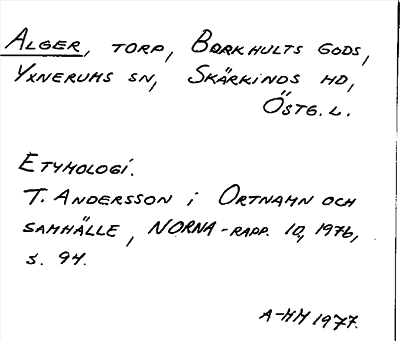 ALGER, TORP, BORKHULTS GODS,
YXNERUMS SN, SKÄRKINDS HD,
ÖSTG. L.
ETYMOLOGI.
T. ANDERSSON i ORTNAMN OCH
SAMHÄLLE, NORNA-RAPP. 10, 1976,
s. 94.
A-MM 1977.